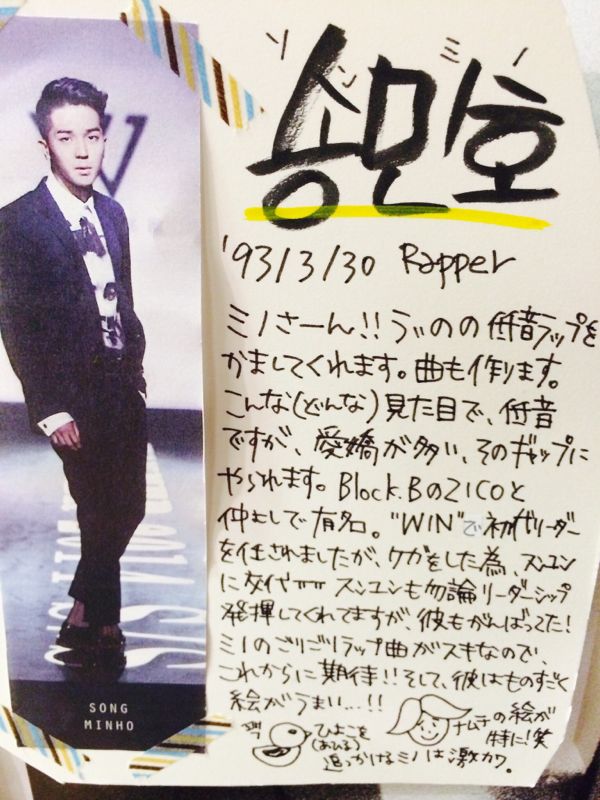 ソン ミノ
송민호
'93/3/30 Rapper
ミノさーん!! うぃのの低音ラップを
かましてくれます。曲も作ります。
こんな(どんな)見た目で、低音
ですが、愛嬌が多い、そのギャップに
やられます。Block.BのZICOと
仲よしで有名。"WIN"で初代リーダー
を任されましたが、ケガをした為、スンユン
に交代ㅠㅠ スンユンも勿論リーダーシップ
発揮してくれてますが、彼もがんばってた!
ミノのごりごりラップ曲がスキなので、
これからに期待!! そして、彼はものすごく
絵がうまい...!!
ナムナの絵が
特に!笑
ひよこを
(あひる)
追っかけるミノは激カワ。
SONG
MINHO